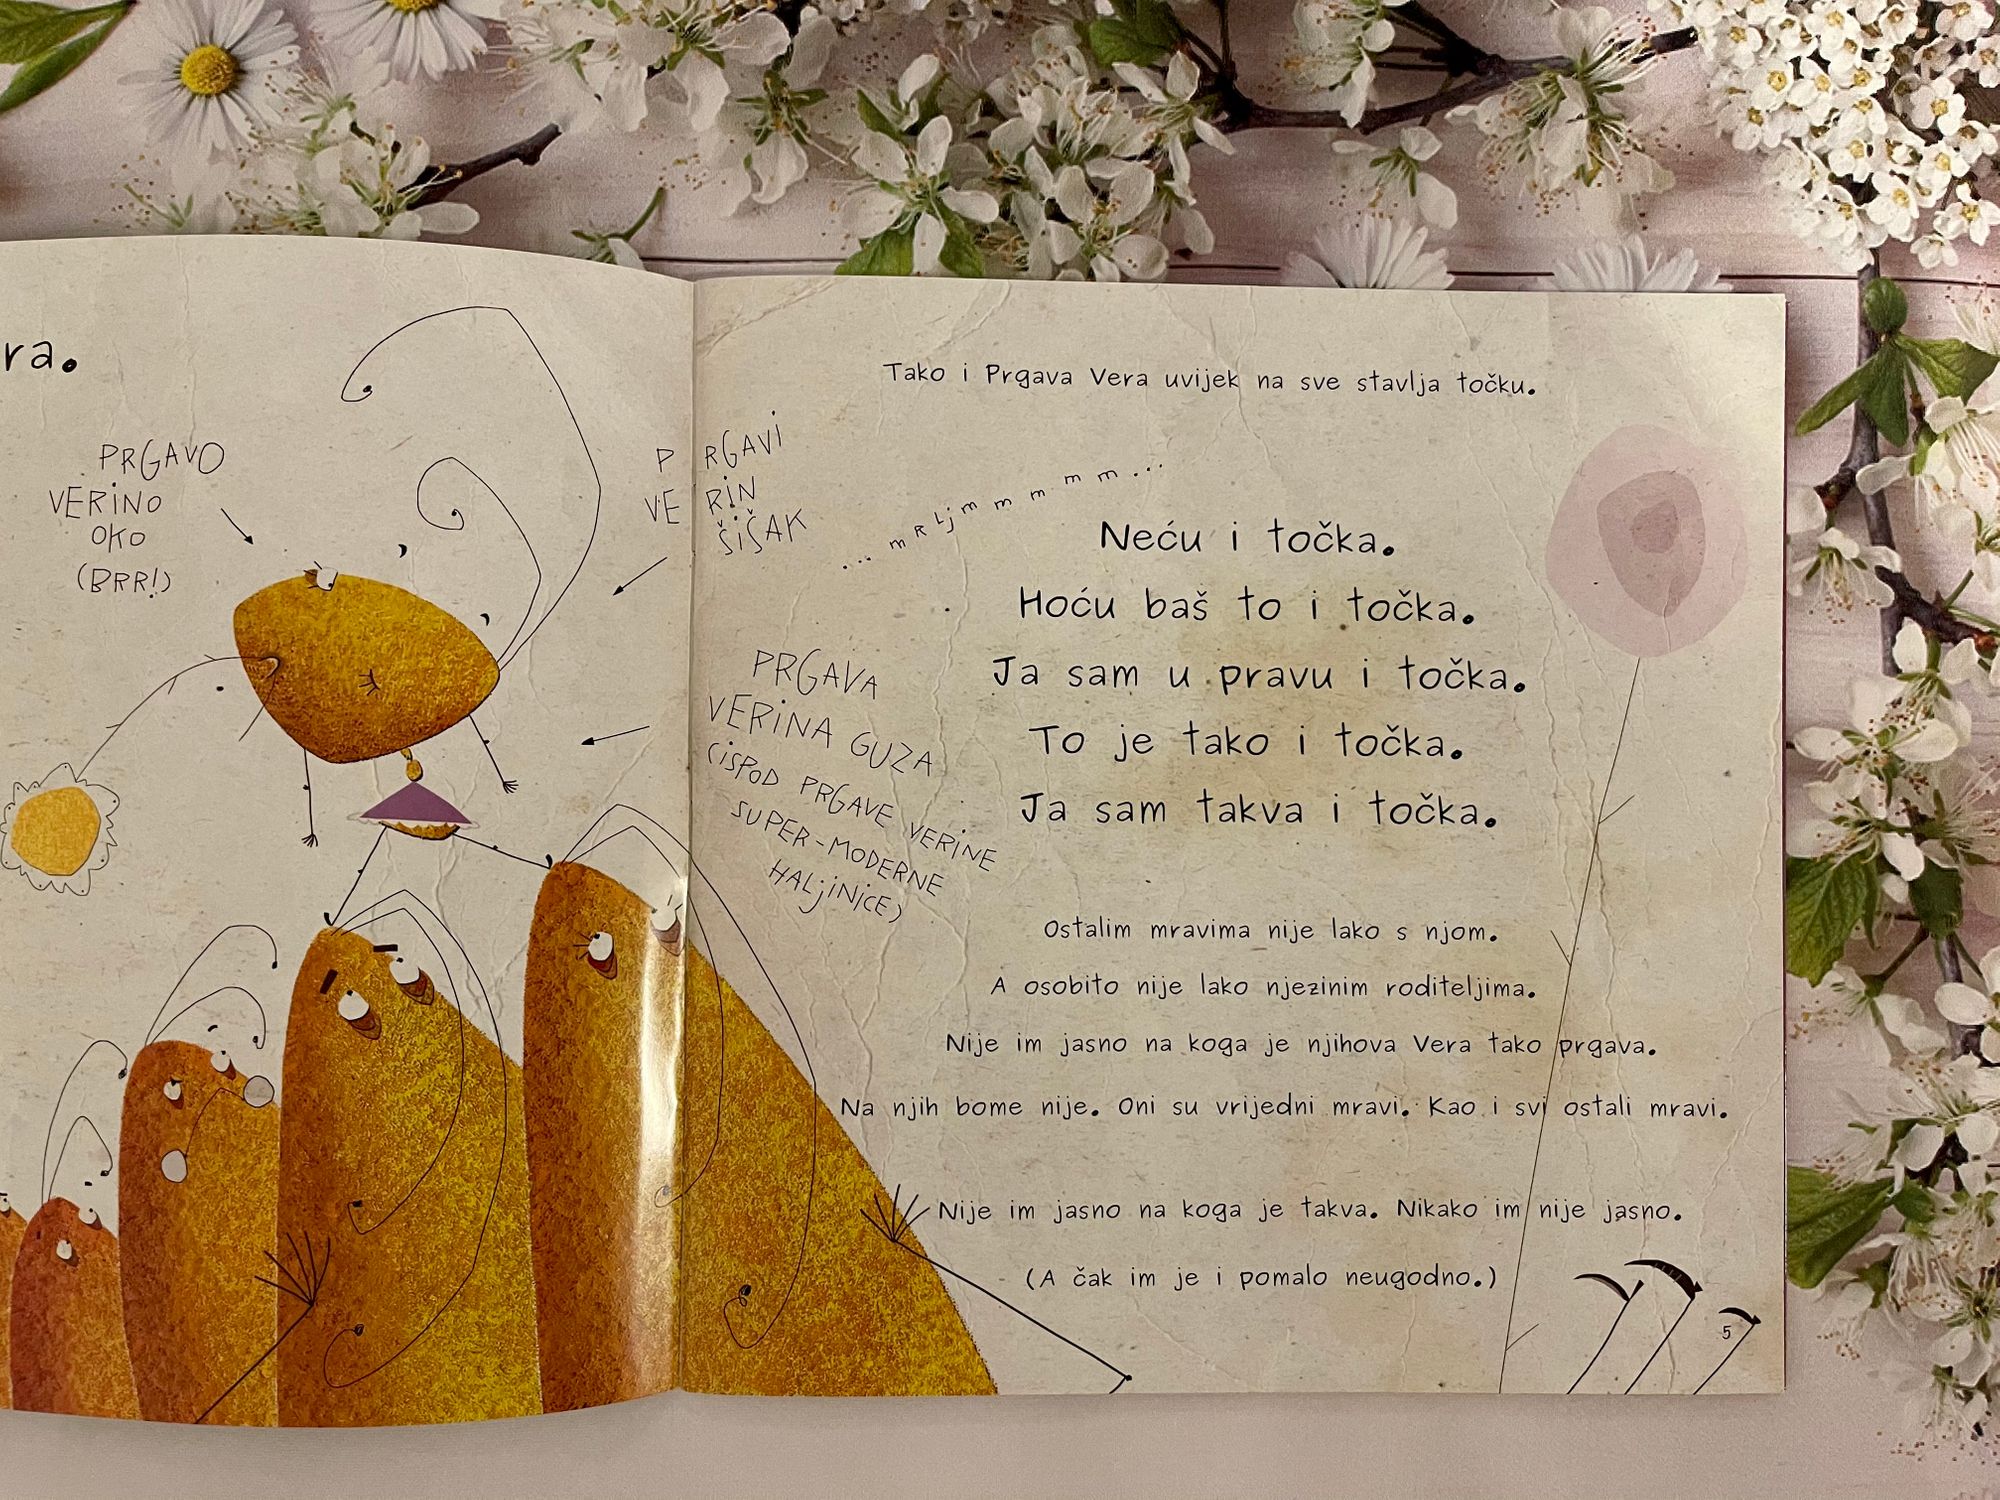 ra.
PRGAVO
VERINO
OKO
(BRR!)
PRGAVI
VERIN
ŠIŠAK
PRGAVA
VERINA GUZA
(ISPOD PRGAVE VERINE
SUPER-MODERNE
HALJINICE)
Tako i Prgava Vera uvijek na sve stavlja točku.
...mRLjmmmmmm...
Neću i točka.
Hoću baš to i točka.
Ja sam u pravu i točka.
To je tako i točka.
Ja sam takva i točka.
Ostalim mravima nije lako s njom.
A osobito nije lako njezinim roditeljima.
Nije im jasno na koga je njihova Vera tako prgava.
Na njih bome nije. Oni su vrijedni mravi. Kao i svi ostali mravi.
Nije im jasno na koga je takva. Nikako im nije jasno.
(A čak im je i pomalo neugodno.)
5